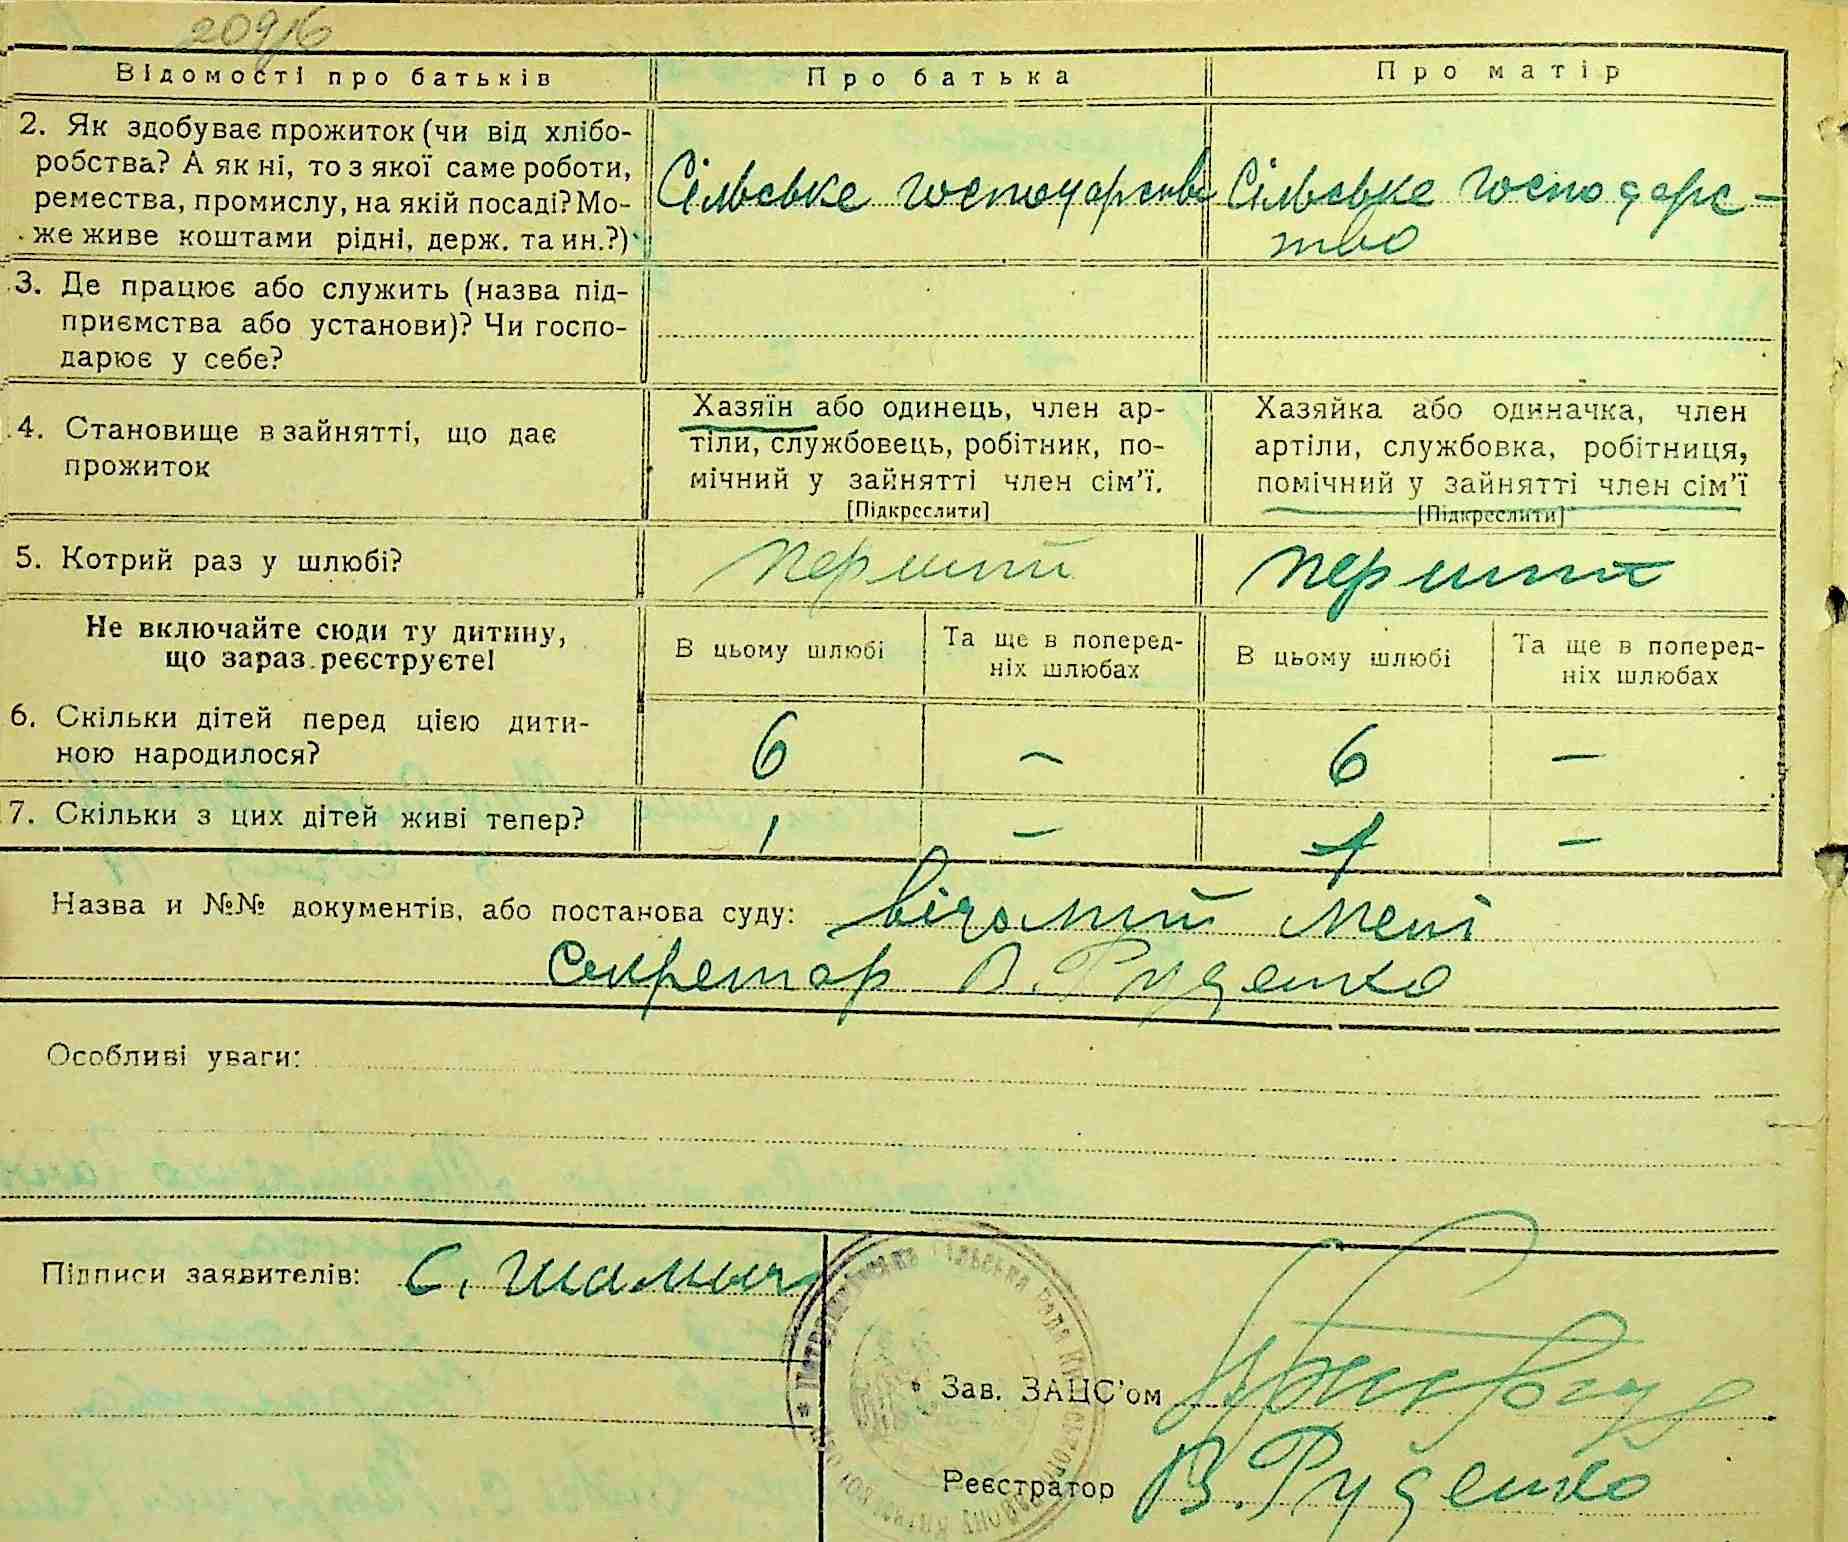 209/6
Відомості про батьків Про батька Про матір
2. Як здобуває прожиток (чи від хлібо-
робства? А як ні, то з якої саме роботи,
ремества, промислу, на якій посаді? Мо-
же живе коштами рідні, держ. та ин.?)
Сільське господарство
Сільське господарс-
тво
3. Де працює або служить (назва під-
приємства або установи)? Чи госпо-
дарює у себе?
4. Становище в зайнятті, що дає
прожиток
Хазяїн або одинець, член ар-
тіли, службовець, робітник, по-
мічний у зайнятті член сім'ї.
[Підкреслити]
Хазяйка або одиначка, член
артіли, службовка, робітниця,
помічний у зайнятті член сім'ї
[Підкреслити]
5. Котрий раз у шлюбі? перший перший
Не включайте сюди ту дитину,
що зараз реєструєте!
В цьому шлюбі
Та ще в поперед-
ніх шлюбах
В цьому шлюбі
Та ще в поперед-
ніх шлюбах
6. Скільки дітей перед цією дити-
ною народилося?
6 – 6 –
7. Скільки з цих дітей живі тепер? 1 – 1 –
Назва и №№ документів, або постанова суду: відомий мені
Секретар В. Руденко
Особливі уваги:
Підписи заявителів: С.
сільська рада
Зав. ЗАЦС'ом
Реєстратор В. Руденко